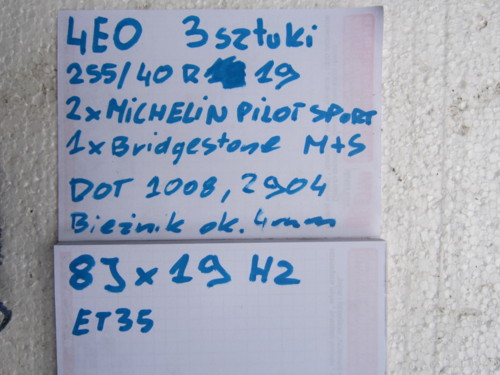 4E0 3 sztuki
255/40 R 19
2x MICHELIN PILOT SPORT
1x Bridgestone M+S
DOT 1008, 2904
Bieżnik ok. 4mm
8J x 19 H2
ET35